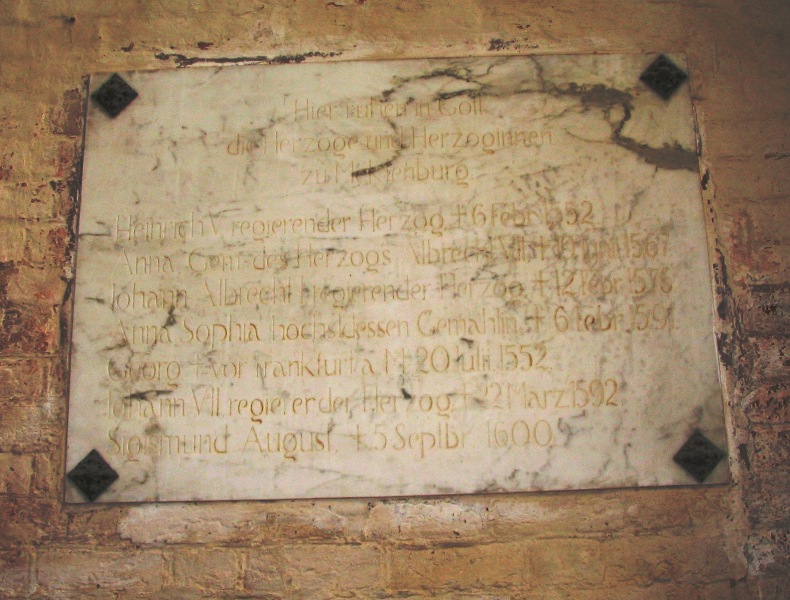 Hier ruhen in Gott
die Herzoge und Herzoginnen
zu Mecklenburg.
Heinrich V. regierender Herzog. † 6 Febr. 1552.
Anna, Gem. des Herzogs Albrecht VII. † 19 Juni 1567
Johann Albrecht I. regierender Herzog. † 12 Febr 1576
Anna Sophia hochsldessen Gemahlin. † 6 Febr. 1591.
Georg † vor Frankfurt a. M. 20 Juli. 1552.
Johann VII. regierender, Herzog. † 22 Marz 1592
Sigismund August. † 5 Septbr 1600.